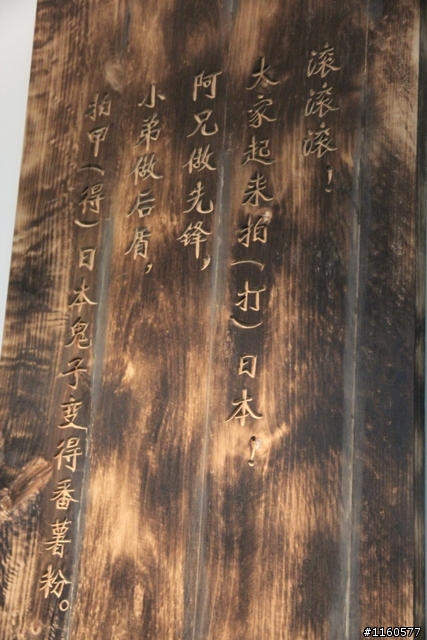 滚滚滚！
大家起来拍（打）日本！
阿兄做先锋，
小弟做后盾，
拍甲（得）日本鬼子变得番薯粉。
#1160577